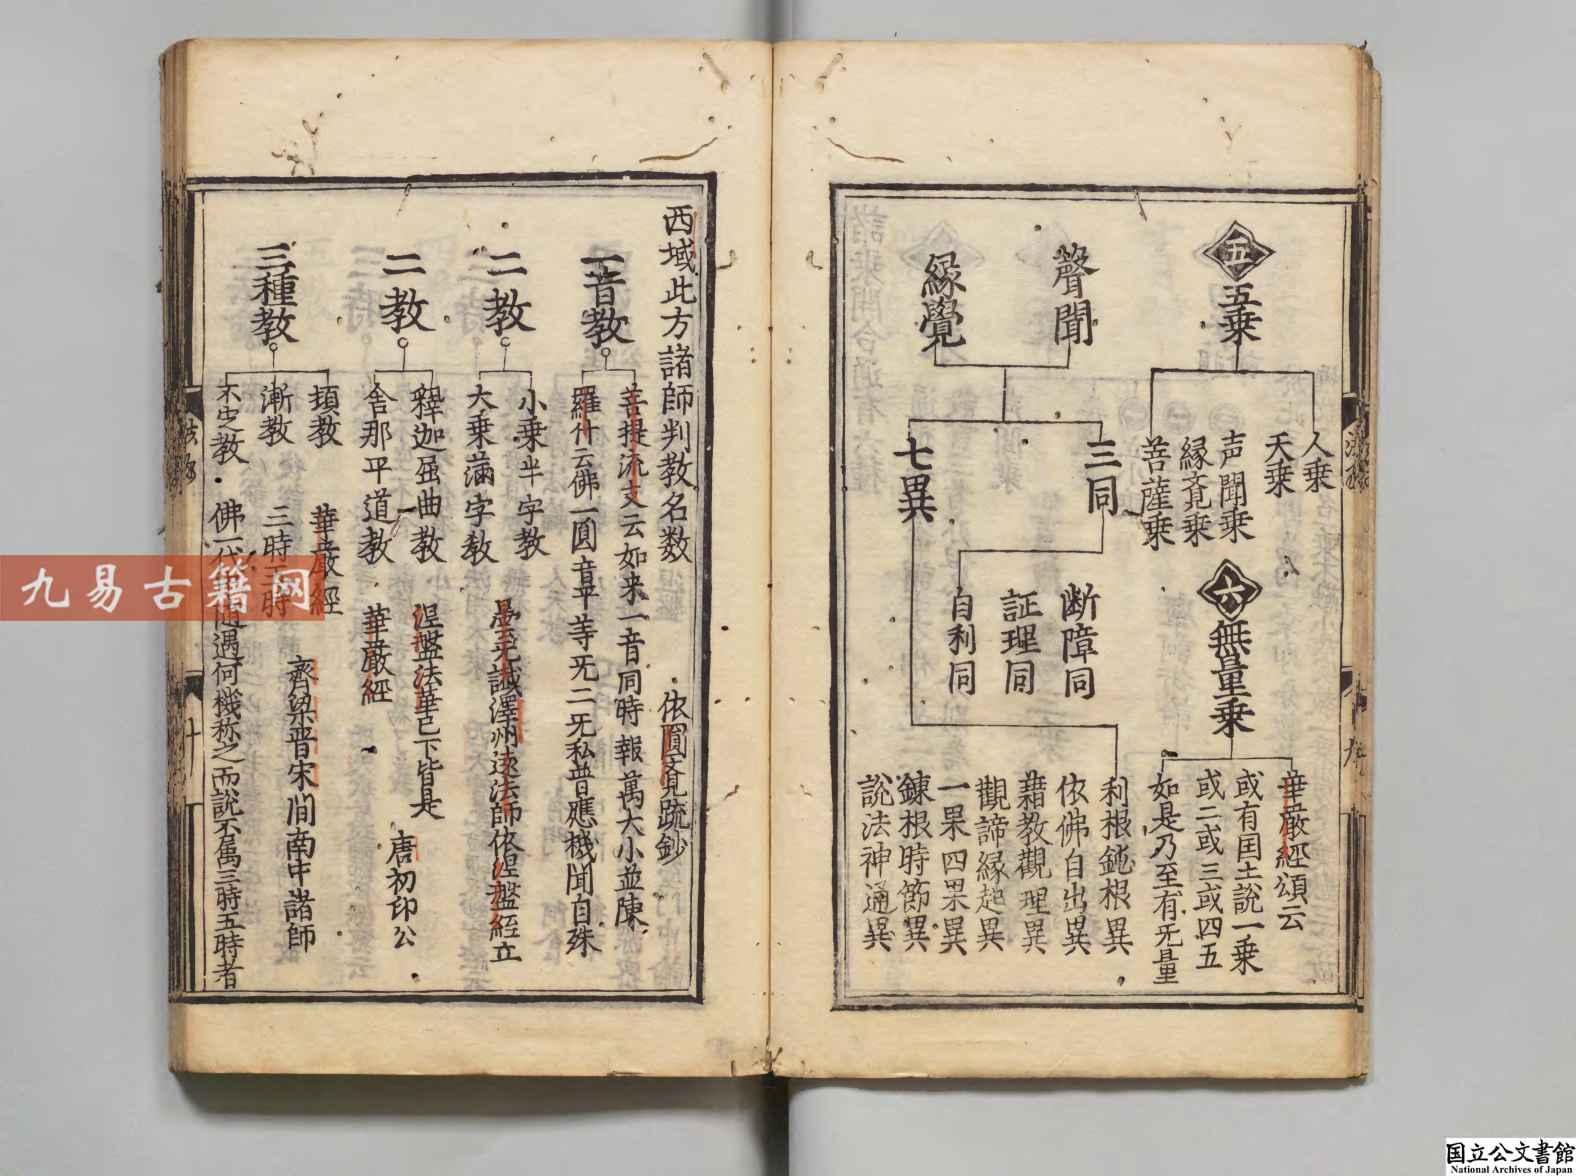 五 五乗
人乗
天乗
声聞乗
縁覺乗
菩薩乗
六 無量乗
華嚴經頌云
或有国土説一乗
或二或三或四五
如是乃至有无量
聲聞
縁覺
三同
断障同
証理同
自利同
七異
利根鈍根異
依佛自出異
藉教觀理異
觀諦縁起異
一果四果異
錬根時節異
説法神通異
九
西域此方諸師判教名数 依圓覚疏鈔
一音教
菩提流支云如来一音同時報萬大小並陳
羅什云佛一圓音平等无二无私普應機聞自殊
二教
小乗半字教
大乗滿字教
曇无讖澤州遠法師依涅盤經立
二教
釋迦屈曲教 涅盤法華已下皆是
舎那平道教 華嚴經
唐初印公
三種教
頓教 華嚴經
漸教 三時五時
不定教 佛一代 随遇何機称之而説不属三時五時者
齊梁晋宋間南中諸師
十
九易古籍网
国立公文書館
National Archives of Japan